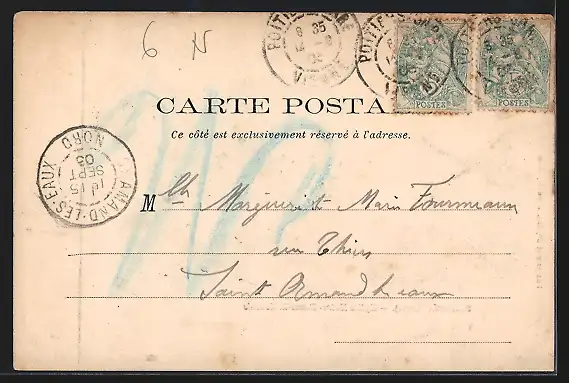 6 N
POITIERS GARE
6 35
VIENNE
POSTES
POSTES
CARTE POSTA
Ce côté est exclusivement réservé à l'adresse.
ST AMAND-LES-EAUX NORD
15
SEPT
03
M lle Marguerite Marie Fourmeaux
rue Thiers
Saint Amand les eaux